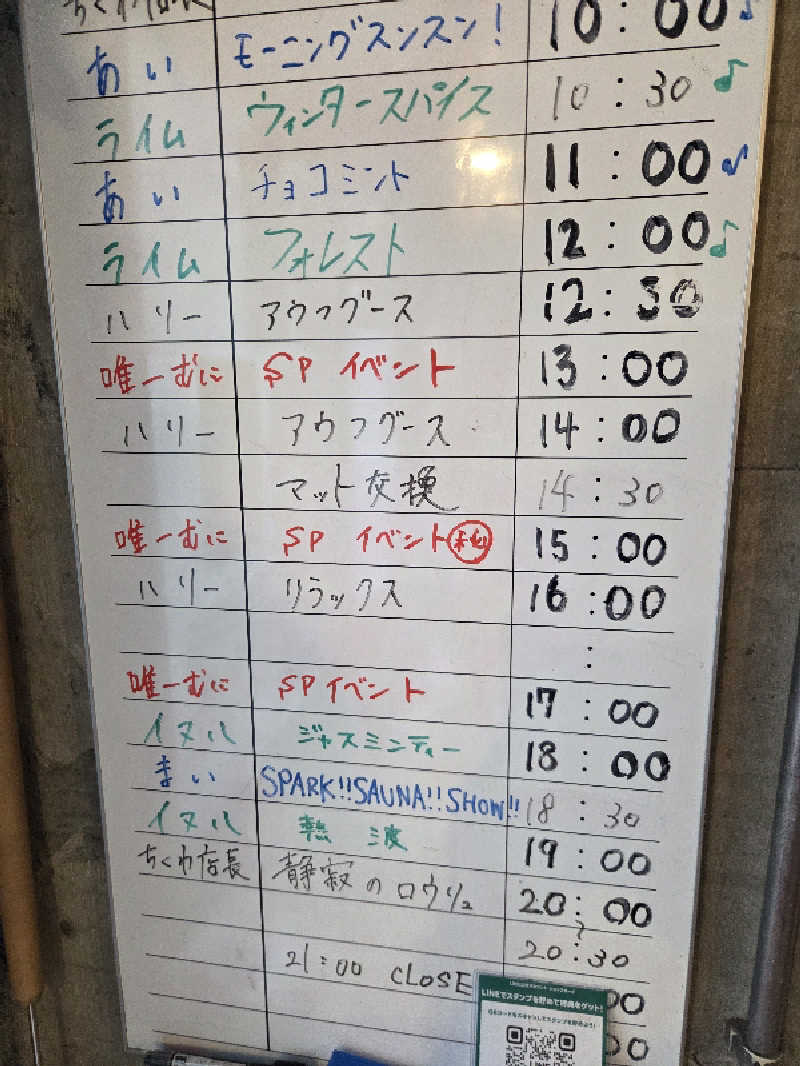 あい モーニングスンスン! 10:00♪
ライム ウィンタースパイス 10:30♪
あい チョコミント 11:00♪
ライム フォレスト 12:00♪
ハリー アウフグース 12:30
唯一むに SP イベント 13:00
ハリー アウフグース 14:00
マット交換 14:30
唯一むに SP イベント 15:00
ハリー リラックス 16:00
:
唯一むに SPイベント 17:00
イヌハ ジャスミンティー 18:00
まい SPARK!!SAUNA!!SHOW!! 18:30
イヌハ 熱波 19:00
ちくわ店長 静寂のロウリュ 20:00
20:30
21:00 CLOSE
LINEでスタンプを貯めて特典をゲット!